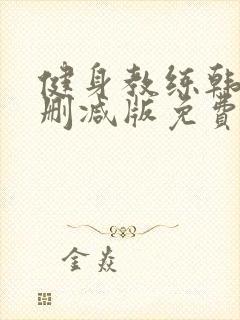 健身教练韩
删减版免费
金焱